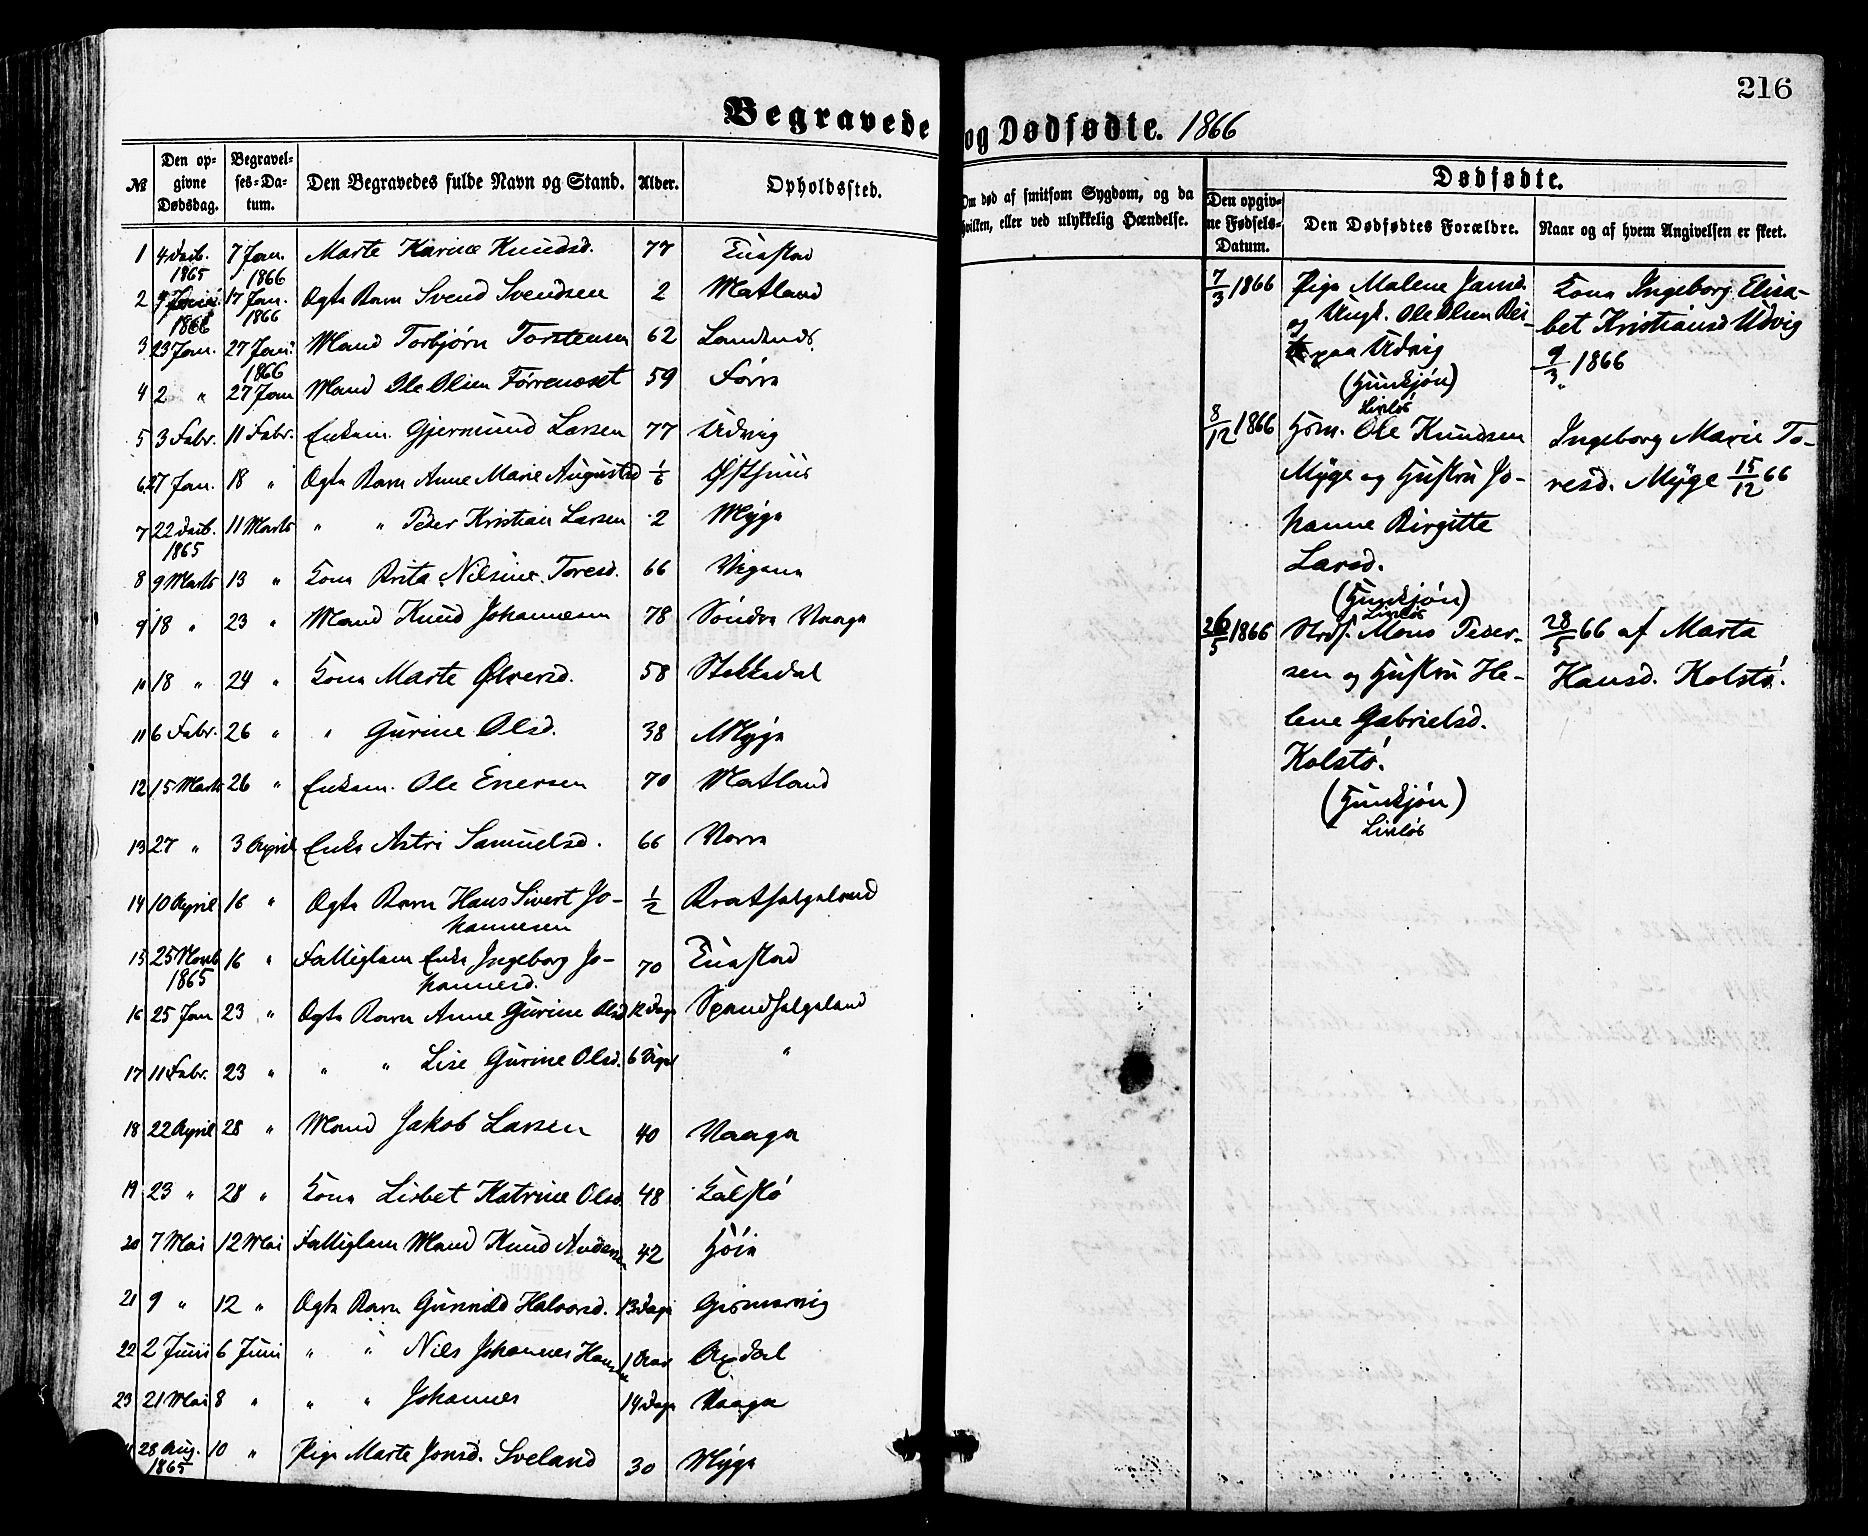 216
Begravede og Dødfødte. 1866
№ Den opgivne Dødsdag. Begravelses-Datum. Den Begravedes fulde Navn og Stand. Alder. Opholdssted.
1 4 Decb. 1865 7 Jan. 1866 Marte Karine Knudsd. 77 Tuastad
2 9 1866 17 Jan. 1866 Ægte Barn Svend Svendsen 2 Matland
3 23 Jan. 27 Jan. 1866 Mand Torbjørn Torstensen 62 Sandsnds.
4 2 " 27 Jan Mand Ole Olsen Førrenæset 59 Førre
5 3 Febr. 11 Febr. Enkem. Gjermund Larsen 77 Udvig
6 27 Jan. 18 " Ægte Barn Anne Marie Augustsd 1/6 Østhuus
7 22 Decb. 1865 11 Marts " " Peder Kristian Larsen 2 Myge
8 9 Marts 13 " Kone Brita Nilsine Toresd. 66 Vigene
9 18 " 23 " Mand Knud Johannesen 78 Søndre Vaage
10 18 " 24 " Kone Marte Ølversd. 58 Stakkedal
11 6 Febr. 26 " " Gurine Olsd. 38 Myge
12 15 Marts 26 " Enkem. Ole Enersen 70 Matland
13 27 " 3 April Enke Astri Samuelsd. 66 Vorre
14 10 April 16 " Ægte Barn Hans Sivert Jo-
hannesen 1/2 Bratthelgeland
15 25 Novb 1865 16 " Fattiglem Enke Ingeborg Jo-
hannesd. 70 Tuastad
16 25 Jan 23 " Ægte Barn Anne Gurine Olsd 12 Dage Spandhelgeland
17 11 Febr. 23 " " " Lise Gurine Olsd. 6 Uger "
18 22 April 28 " Mand Jakob Larsen 40 Vaage
19 23 " 28 " Kone Lisbet Katrine Olsd. 48 Kalstø
20 7 Mai 12 Mai Fattiglem Mand Knud Andersen 42 Høie
21 9 " 12 " Ægte Barn Gunnild Halvorsd. 13 Dage Gismervig
22 2 Juni 6 Juni " " Nils Johannes Hansen 1 Aar Axdal
23 21 Mai 8 " " " Johannes 14 Dage Vaage
28 Aug. 1865 10 " Pige Marte Jonsd. Sveland 30 Myge
Om død af smitsom Sygdom, og da
hvilken, eller ved ulykkelig Hændelse.
Dødfødte.
Den opgivne Fødsels-Datum. Den Dødfødtes Forældre. Naar og af hvem Angivelsen er skeet.
7/3 1866 Pige Malene Jansd.
og Ungk. Ole Olsen
paa Udvig
(Hunkjøn)
Livløs
Kone Ingeborg Elisa-
bet Kristiansd Udvig
9/3 1866
8/12 1866 Hsm. Ole Knudsen
Myge og Hustru Jo-
hanne Birgitte
Larsd.
(Hunkjøn)
Livløs
Ingeborg Marie To-
resd. Myge 15/12 66
26/5 1866 Mons Peder-
sen og Hustru He-
lene Gabrielsd.
Kolstø.
(Hunkjøn)
Livløs
28/5 66 af Marta
Hansd. Kolstø.